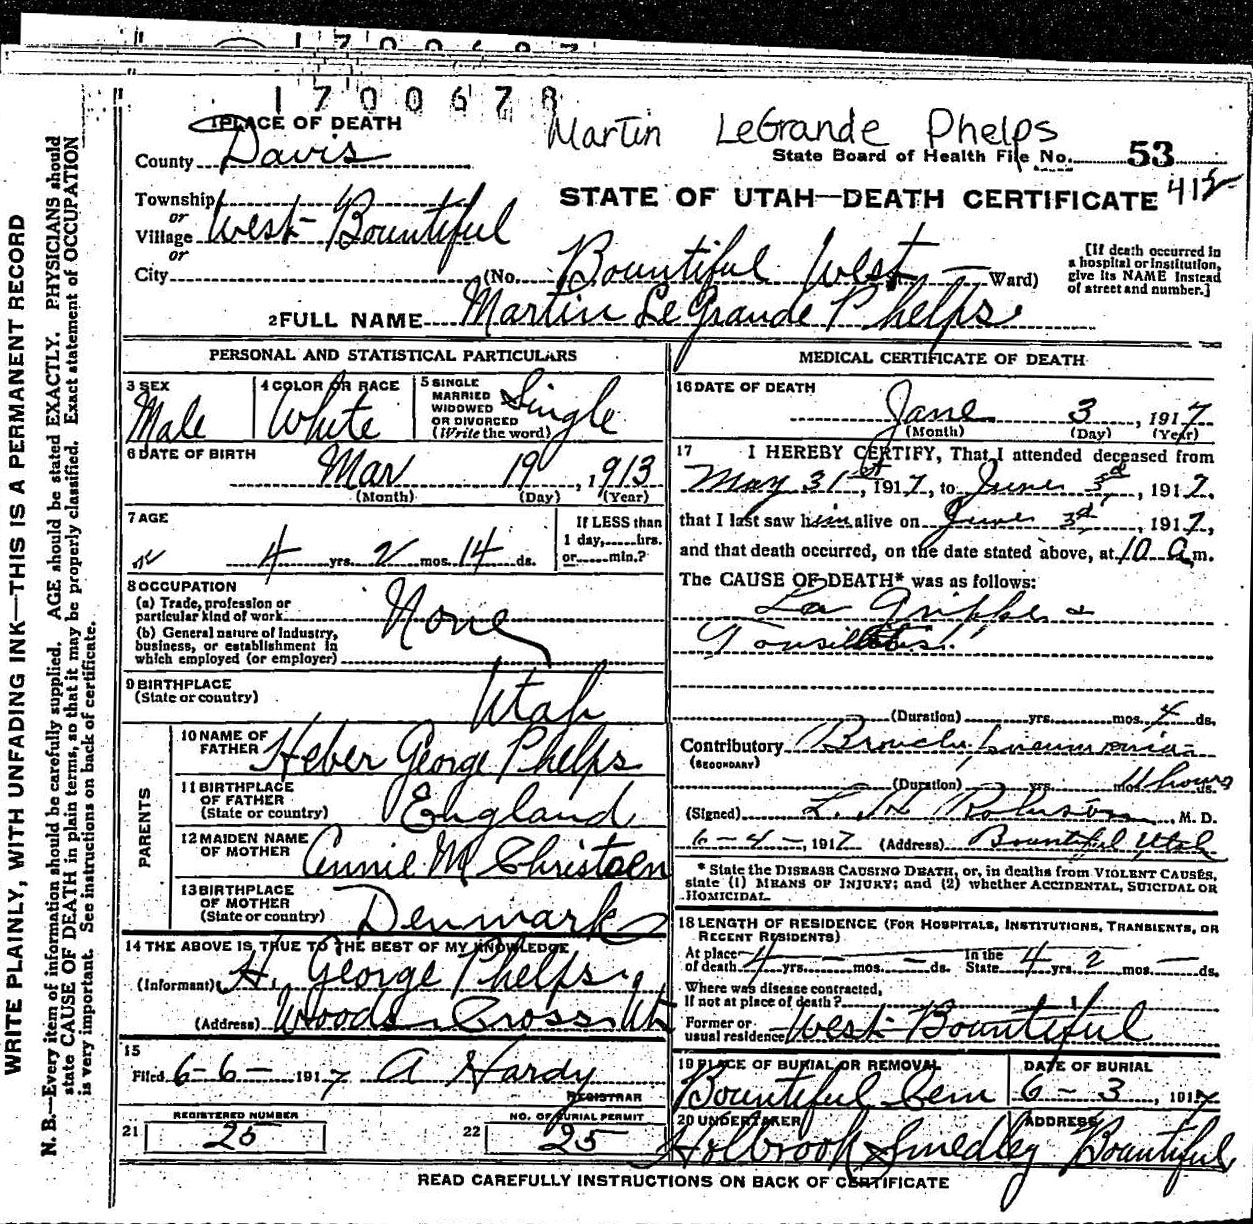 1700678
1 PLACE OF DEATH
Martin LeGrande Phelps
County Davis
State Board of Health File No. 53
412
Township
or
Village West Bountiful
or
City
STATE OF UTAH—DEATH CERTIFICATE
(No. Bountiful West — Ward)
[If death occurred in
a hospital or institution,
give its NAME instead
of street and number.]
2 FULL NAME Martin LeGrande Phelps
PERSONAL AND STATISTICAL PARTICULARS
3 SEX Male
4 COLOR OR RACE White
5 SINGLE
MARRIED
WIDOWED
OR DIVORCED
(Write the word) Single
6 DATE OF BIRTH
Mar 19, 1913
(Month) (Day) (Year)
7 AGE
4 yrs. 2 mos. 14 ds.
If LESS than
1 day, hrs.
or min.?
8 OCCUPATION
(a) Trade, profession or
particular kind of work None
(b) General nature of industry,
business, or establishment in
which employed (or employer)
9 BIRTHPLACE
(State or country) Utah
PARENTS
10 NAME OF
FATHER Heber George Phelps
11 BIRTHPLACE
OF FATHER
(State or country) England
12 MAIDEN NAME
OF MOTHER Annie M Christsen
13 BIRTHPLACE
OF MOTHER
(State or country) Denmark
14 THE ABOVE IS TRUE TO THE BEST OF MY KNOWLEDGE
(Informant) H. George Phelps
(Address) Woods Cross Ut
15
Filed 6-6-1917 A Hardy
REGISTRAR
REGISTERED NUMBER
21 25
NO. OF BURIAL PERMIT
22 25
MEDICAL CERTIFICATE OF DEATH
16 DATE OF DEATH
June 3, 1917
(Month) (Day) (Year)
17 I HEREBY CERTIFY, That I attended deceased from
May 31st, 1917, to June 3d, 1917,
that I last saw him alive on June 3d, 1917,
and that death occurred, on the date stated above, at 10 a m.
The CAUSE OF DEATH* was as follows:
La Grippe &
Tonsilitis
(Duration) yrs. mos. 4 ds.
Contributory Broncho pneumonia
(SECONDARY)
(Duration) yrs. mos. hours ds.
(Signed) L. H. Robinson, M. D.
6-4-, 1917 (Address) Bountiful Utah
* State the DISEASE CAUSING DEATH, or, in deaths from VIOLENT CAUSES,
state (1) MEANS OF INJURY; and (2) whether ACCIDENTAL, SUICIDAL OR
HOMICIDAL.
18 LENGTH OF RESIDENCE (FOR HOSPITALS, INSTITUTIONS, TRANSIENTS, OR
RECENT RESIDENTS)
At place
of death 4 yrs. — mos. — ds. In the
State 4 yrs. 2 mos. — ds.
Where was disease contracted,
If not at place of death?
Former or
usual residence West Bountiful
19 PLACE OF BURIAL OR REMOVAL
Bountiful Cem
DATE OF BURIAL
6-3, 1917
20 UNDERTAKER
Holbrook Smedley
ADDRESS
Bountiful
READ CAREFULLY INSTRUCTIONS ON BACK OF CERTIFICATE
WRITE PLAINLY, WITH UNFADING INK—THIS IS A PERMANENT RECORD
N. B.—Every item of information should be carefully supplied. AGE should be stated EXACTLY. PHYSICIANS should
state CAUSE OF DEATH in plain terms, so that it may be properly classified. Exact statement of OCCUPATION
is very important. See instructions on back of certificate.